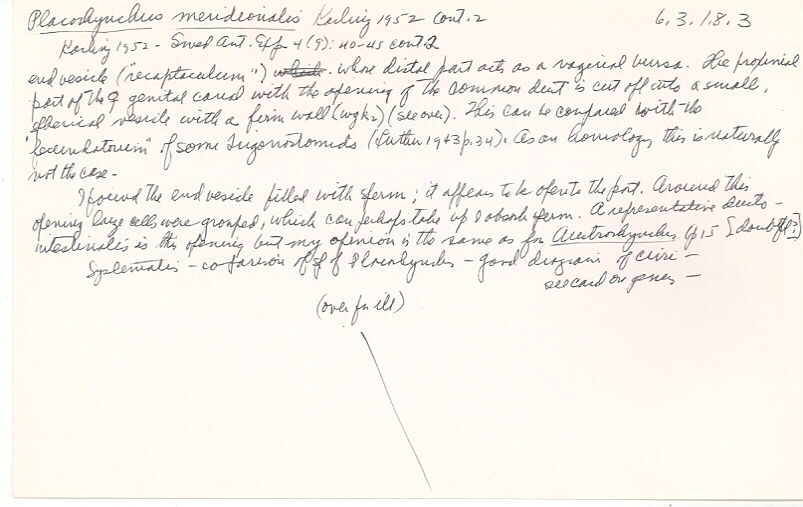 Placorhynchus meridionalis Karling 1952 cont. 2 6.3.1.8.3
Karling 1952 - Swed Ant. Exp 4(9): 40-45 cont. 2
end vesicle ("receptaculum") which whose distal part acts as a vaginal bursa. The proximal
part of the ♀ genital canal with the opening of the common duct is cut off into a small,
spherical vesicle with a firm wall (wgk2) (see over). This can be compared with the
"fecundatorium" of some Trigonostomids (Luther 1943 p. 34). As an homology, this is naturally
not the case -
I found the end vesicle filled with sperm; it appears to be open to the post. Around this
opening large cells were grouped, which can perhaps take up & absorb sperm. A representative ducto-
intestinalis is this opening but my opinion is the same as for Austrorhynchus (p 15 [doubtful?]
Systematics - comparison of spp of Placorhynchus - good diagram of cirri -
see card on genus -
(over for ill)